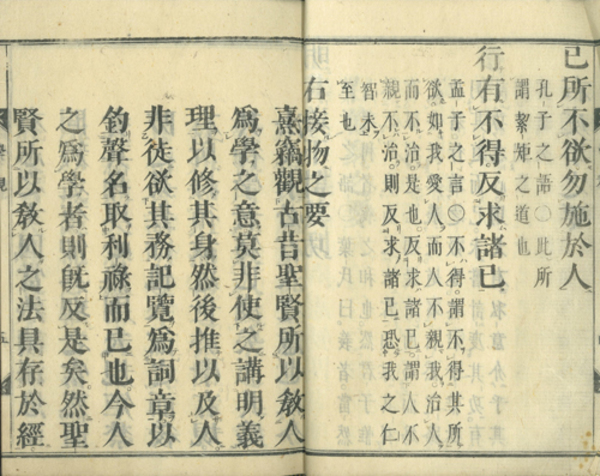 己所不欲勿施於人
孔子之語〇此所
謂絜矩之道也
行有不得反求諸己
孟子之言〇不得謂不得其所
欲如我愛人而人不親我治人
而不治是也反求諸己謂人不
親不治則反求諸己恐我之仁
智未
至也
右接物之要
熹竊觀古昔聖賢所以教人
爲學之意莫非使之講明義
理以修其身然後推以及人
非徒欲其務記覽爲詞章以
釣聲名取利祿而已也今人
之爲學者則既反是矣然聖
賢所以教人之法具存於經